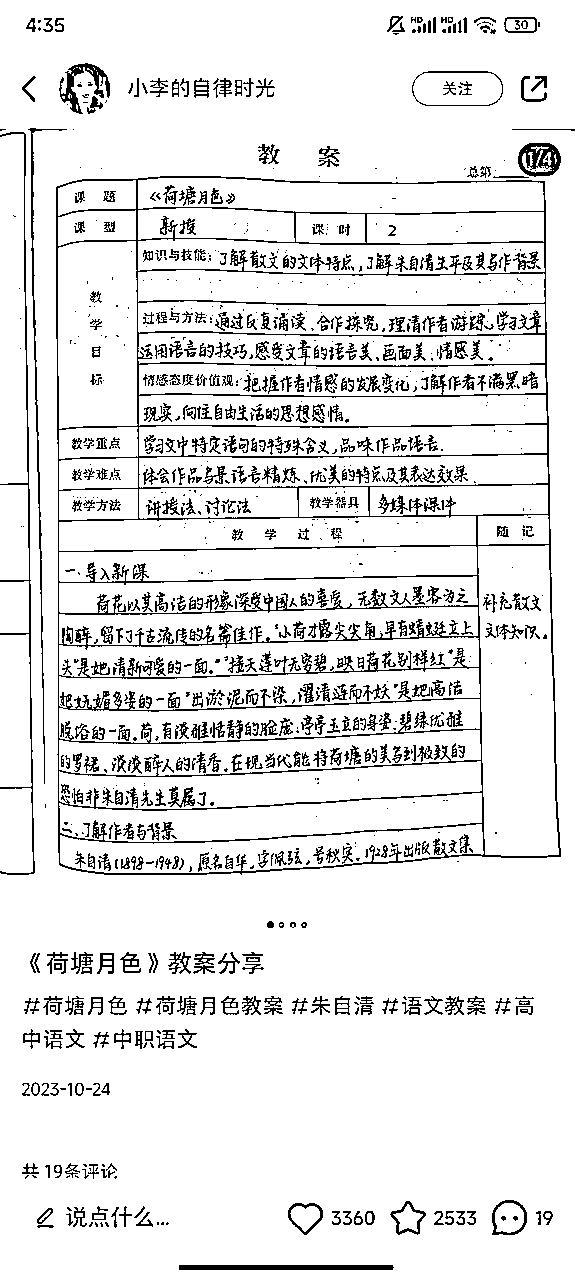 4:35
30
小李的自律时光
关注
教 案
1/4
总第
课 题 《荷塘月色》
课 型 新授 课 时 2
教学目标
知识与技能：了解散文的文体特点，了解朱自清生平及其写作背景
过程与方法：通过反复诵读、合作探究，理清作者游踪，学习文章
运用语言的技巧，感受文章的语言美、画面美、情感美。
情感态度价值观：把握作者情感的发展变化，了解作者不满黑暗
现实，向往自由生活的思想感情。
教学重点 学习文中特定语句的特殊含义，品味作品语言.
教学难点 体会作品写景语言精炼、优美的特点及其表达效果
教学方法 讲授法、讨论法 教学器具 多媒体课件
教 学 过 程 随 记
一、导入新课
荷花以其高洁的形象深受中国人的喜爱，无数文人墨客为之
陶醉，留下了千古流传的名篇佳作。"小荷才露尖尖角，早有蜻蜓立上
头"是她清新可爱的一面。"接天莲叶无穷碧，映日荷花别样红"是
她妩媚多姿的一面"出淤泥而不染，濯清涟而不妖"是她高洁
脱俗的一面。荷，有淡雅恬静的脸庞；亭亭玉立的身姿；碧绿优雅
的罗裙、淡淡醉人的清香。在现当代能将荷塘的美写到极致的
恐怕非朱自清先生莫属了。
补充散文
文体知识。
二、了解作者与背景
朱自清(1898-1948)，原名自华，字佩弦，号秋实。1928年出版散文集
《荷塘月色》教案分享
#荷塘月色 #荷塘月色教案 #朱自清 #语文教案 #高
中语文 #中职语文
2023-10-24
共 19条评论
说点什么... 3360 2533 19